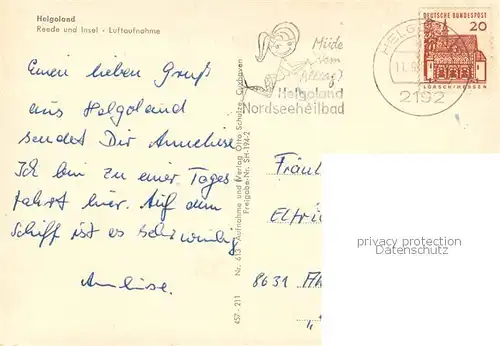 Helgoland
Reede und Insel · Luftaufnahme
Müde
vom
Alltag?
Helgoland
Nordseeheilbad
HELG
11.
2192
DEUTSCHE BUNDESPOST
20
LORSCH/HESSEN
Einen lieben Gruß
aus Helgoland
sendet Dir Anneliese
Ich bin zu einer Tages
fahrt hier. Auf dem
Schiff ist es sehr windig
Anneliese.
457 - 211 Nr. 613 Aufnahme und Verlag Otto Schulze, Cuxhaven
Freigabe-Nr. SH-194-2
Fräul
Elfri
8631
privacy protection
www.delcampe.net